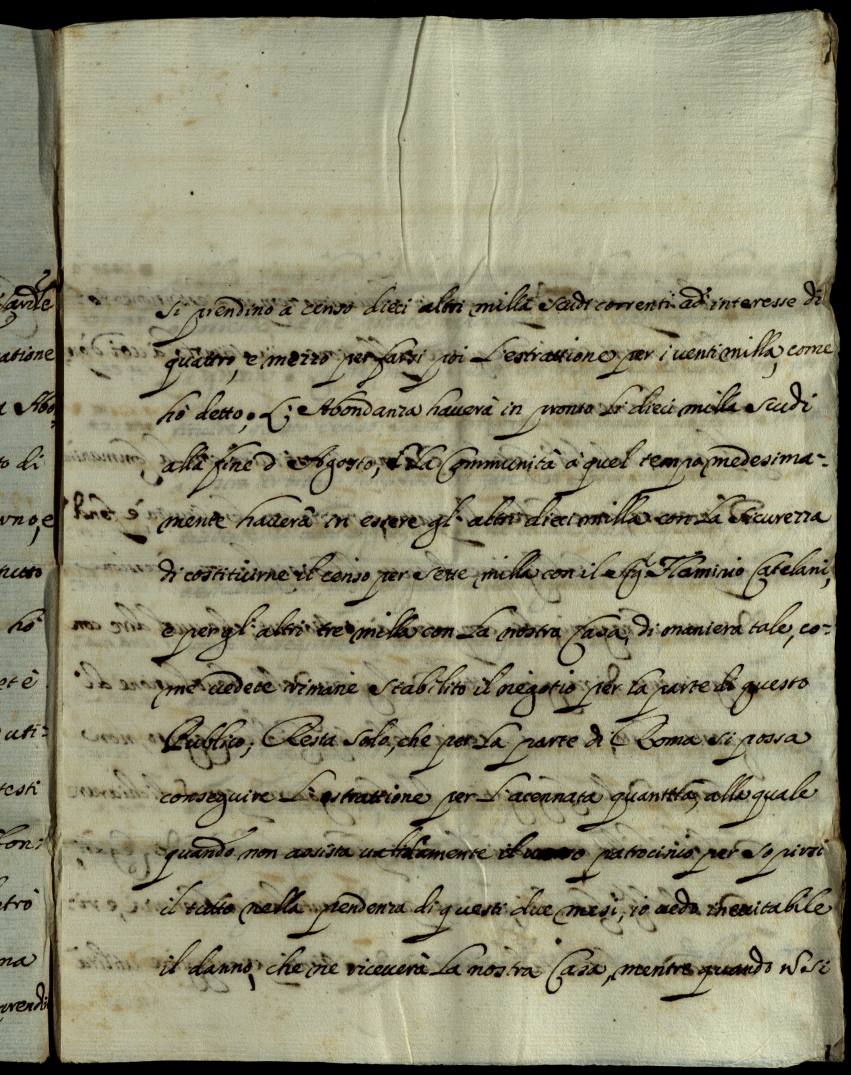 si prendino à censo dieci altri milla scudi correnti ad interesse di
quattro, e mezzo per farsi poi L'estrattione per i venti milla, come
hò detto. L'Abondanza hauerà in pronto li dieci milla scudi
alla fine d'Agosto, e La Communità à quel tempo medesima-
mente hauerà in essere gl'altri dieci milla con La sicurezza
di costituirne il censo per sette milla con il Sig.r Flaminio Catelani,
e per gl'altri tre milla con La nostra Casa, di maniera tale, co-
me uedete rimane stabilito il negotio per la parte di questo
Publico, Resta solo, che per La parte di Roma si possa
conseguire L'estrattione per L'acennata quantità, alla quale
quando non assista ualidamente il patrocinio per sopirsi
il tutto nella pendenza di questi due mesi, io uedo ineuitabile
il danno, che ne riceuerà La nostra Casa, mentre quando si
auide
atione
Abo
to di
uno, e
tutto
hò
et è
uti-
testi
tro
na
prendi